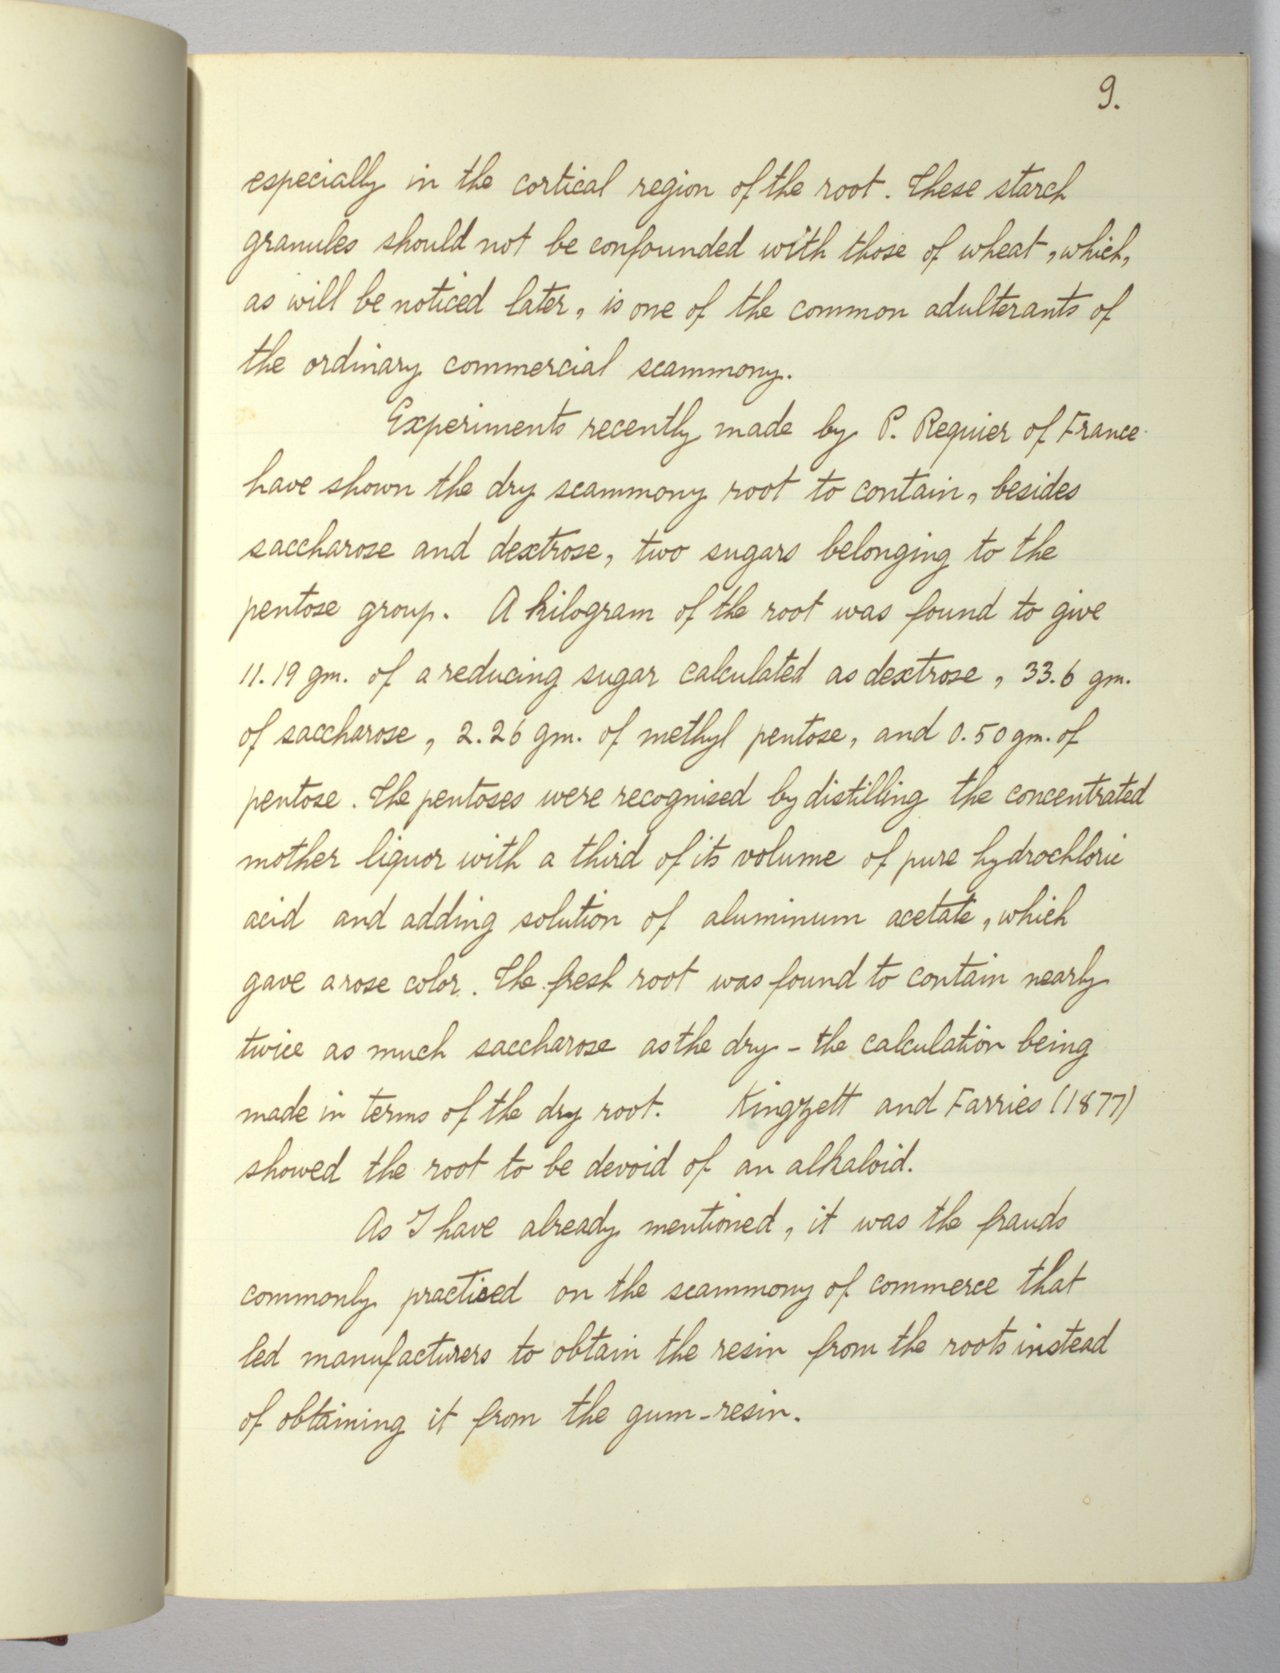 9.
especially in the cortical region of the root. These starch
granules should not be confounded with those of wheat, which,
as will be noticed later, is one of the common adulterants of
the ordinary commercial scammony.
Experiments recently made by P. Requier of France
have shown the dry scammony root to contain, besides
saccharose and dextrose, two sugars belonging to the
pentose group. A kilogram of the root was found to give
11.19 gm. of a reducing sugar calculated as dextrose, 33.6 gm.
of saccharose, 2.26 gm. of methyl pentose, and 0.50 gm. of
pentose. The pentoses were recognized by distilling the concentrated
mother liquor with a third of its volume of pure hydrochloric
acid and adding solution of aluminum acetate, which
gave a rose color. The fresh root was found to contain nearly
twice as much saccharose as the dry - the calculation being
made in terms of the dry root. Kingzett and Farries (1877)
showed the root to be devoid of an alkaloid.
As I have already mentioned, it was the frauds
commonly practiced on the scammony of commerce that
led manufacturers to obtain the resin from the roots instead
of obtaining it from the gum-resin.